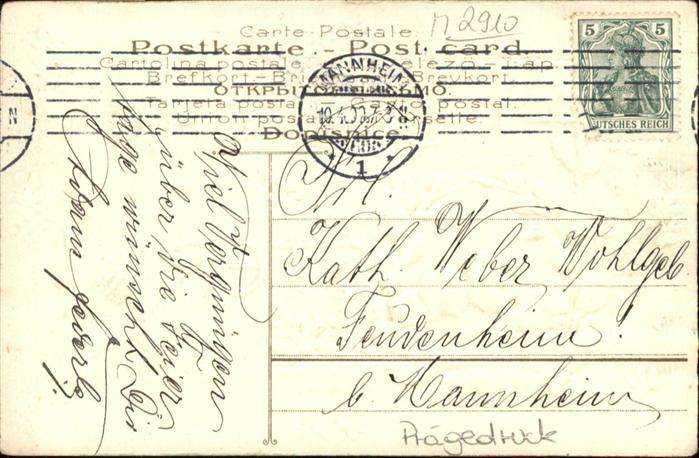 Π 2910
Carte Postale
Postkarte - Post card
Cartolina postale
Brefkort - Brevkort
ОТКРЫТОЕ ПИСЬМО
Tarjeta postal
Union postale universelle
Dopisnice
5 5
DEUTSCHES REICH
MANNHEIM
1
Viel Vergnügen
über die Feier
tage wünscht Dir
Frl.
Kath. Weber Wohlgeb
Feudenheim!
b. Mannheim
Prägedruck